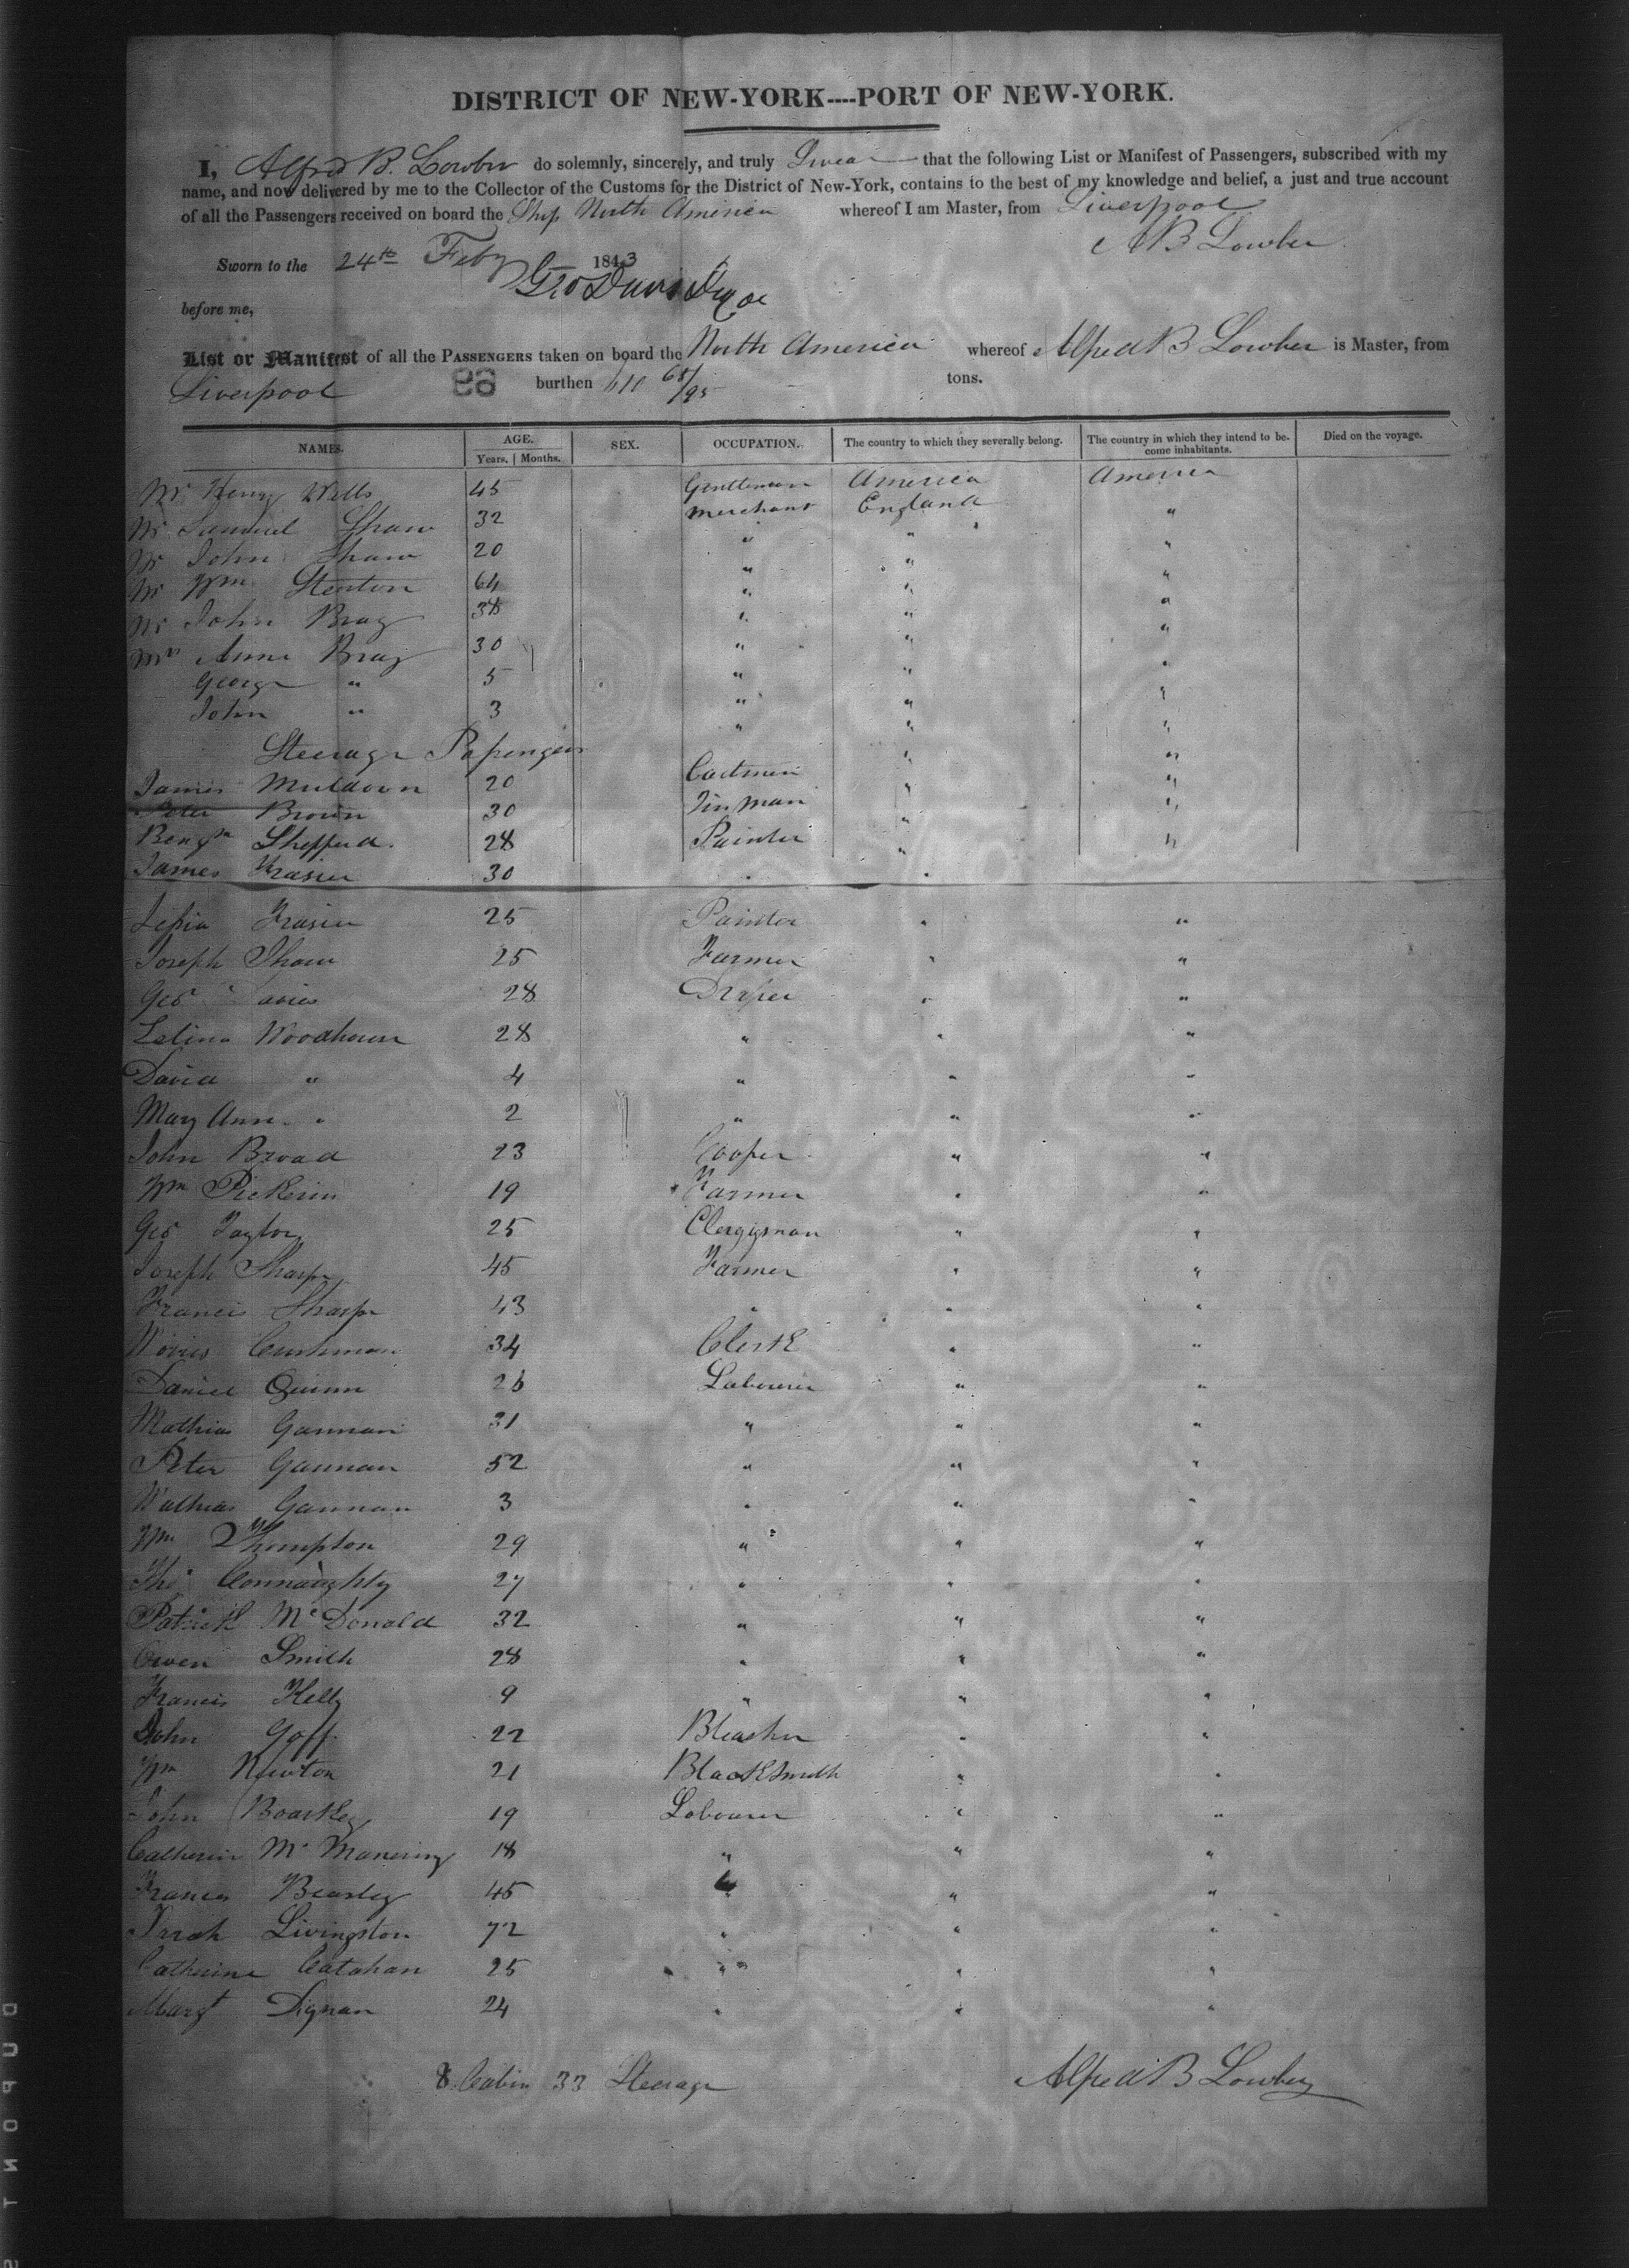 DISTRICT OF NEW-YORK----PORT OF NEW-YORK.
I, Alfred B. Lowber do solemnly, sincerely, and truly Swear that the following List or Manifest of Passengers, subscribed with my
name, and now delivered by me to the Collector of the Customs for the District of New-York, contains to the best of my knowledge and belief, a just and true account
of all the Passengers received on board the Ship North America whereof I am Master, from Liverpool
A B Lowber
Sworn to the 24th Feby 1843
Geo Davis
before me,
List or Manifest of all the PASSENGERS taken on board the North America whereof Alfred B Lowber is Master, from
Liverpool 96 burthen 610 68/95 tons.
NAMES. AGE. SEX. OCCUPATION. The country to which they severally belong. The country in which they intend to be- Died on the voyage.
Years. | Months. come inhabitants.
Mr Henry Wells 45 Gentleman America America
Mr Samuel Shaw 32 Merchant England "
Mr John Shaw 20 " " "
Mr Wm Stenton 64 " " "
Mr John Bray 38 " " "
Mrs Anne Bray 30 " " "
George " 5 " " "
John " 3 " " "
Steerage Passengers
James Muldown 20 " "
Peter Brown 30 Tinman " "
Benjn Shepperd. 28 Painter " "
James Frasier 30 " "
Frasier 25 Painter " "
Joseph Shaw 25 Farmer " "
Geo Davies 28 Draper " "
Woodhouse 28 " " "
David " 4 " " "
Mary Ann " 2 " " "
John Broad 23 Cooper " "
Wm Pickerin 19 Farmer " "
Geo Taylor 25 Clergyman " "
Joseph Sharpe 45 Farmer " "
Francis Sharpe 43 " " "
Cushman 34 Clerk " "
Daniel Quinn 26 Labourer " "
Mathias Gannan 31 " " "
Peter Gannan 52 " " "
Mathias Gannan 3 " " "
Wm Thompton 29 " " "
Thos Connaughty 27 " " "
Patrick McDonald 32 " " "
Owen Smith 28 " " "
Francis Kelly 9 " " "
John Goff 22 Bleacher " "
Wm Newton 21 Blacksmith " "
John 19 Labourer " "
Catherin Mc Manering 18 " " "
Frances Beasley 45 " " "
Livingston 72 " " "
Catherine Catahan 25 " " "
Margt Dignan 24 " " "
8 Cabin 33 Steerage Alfred B Lowber